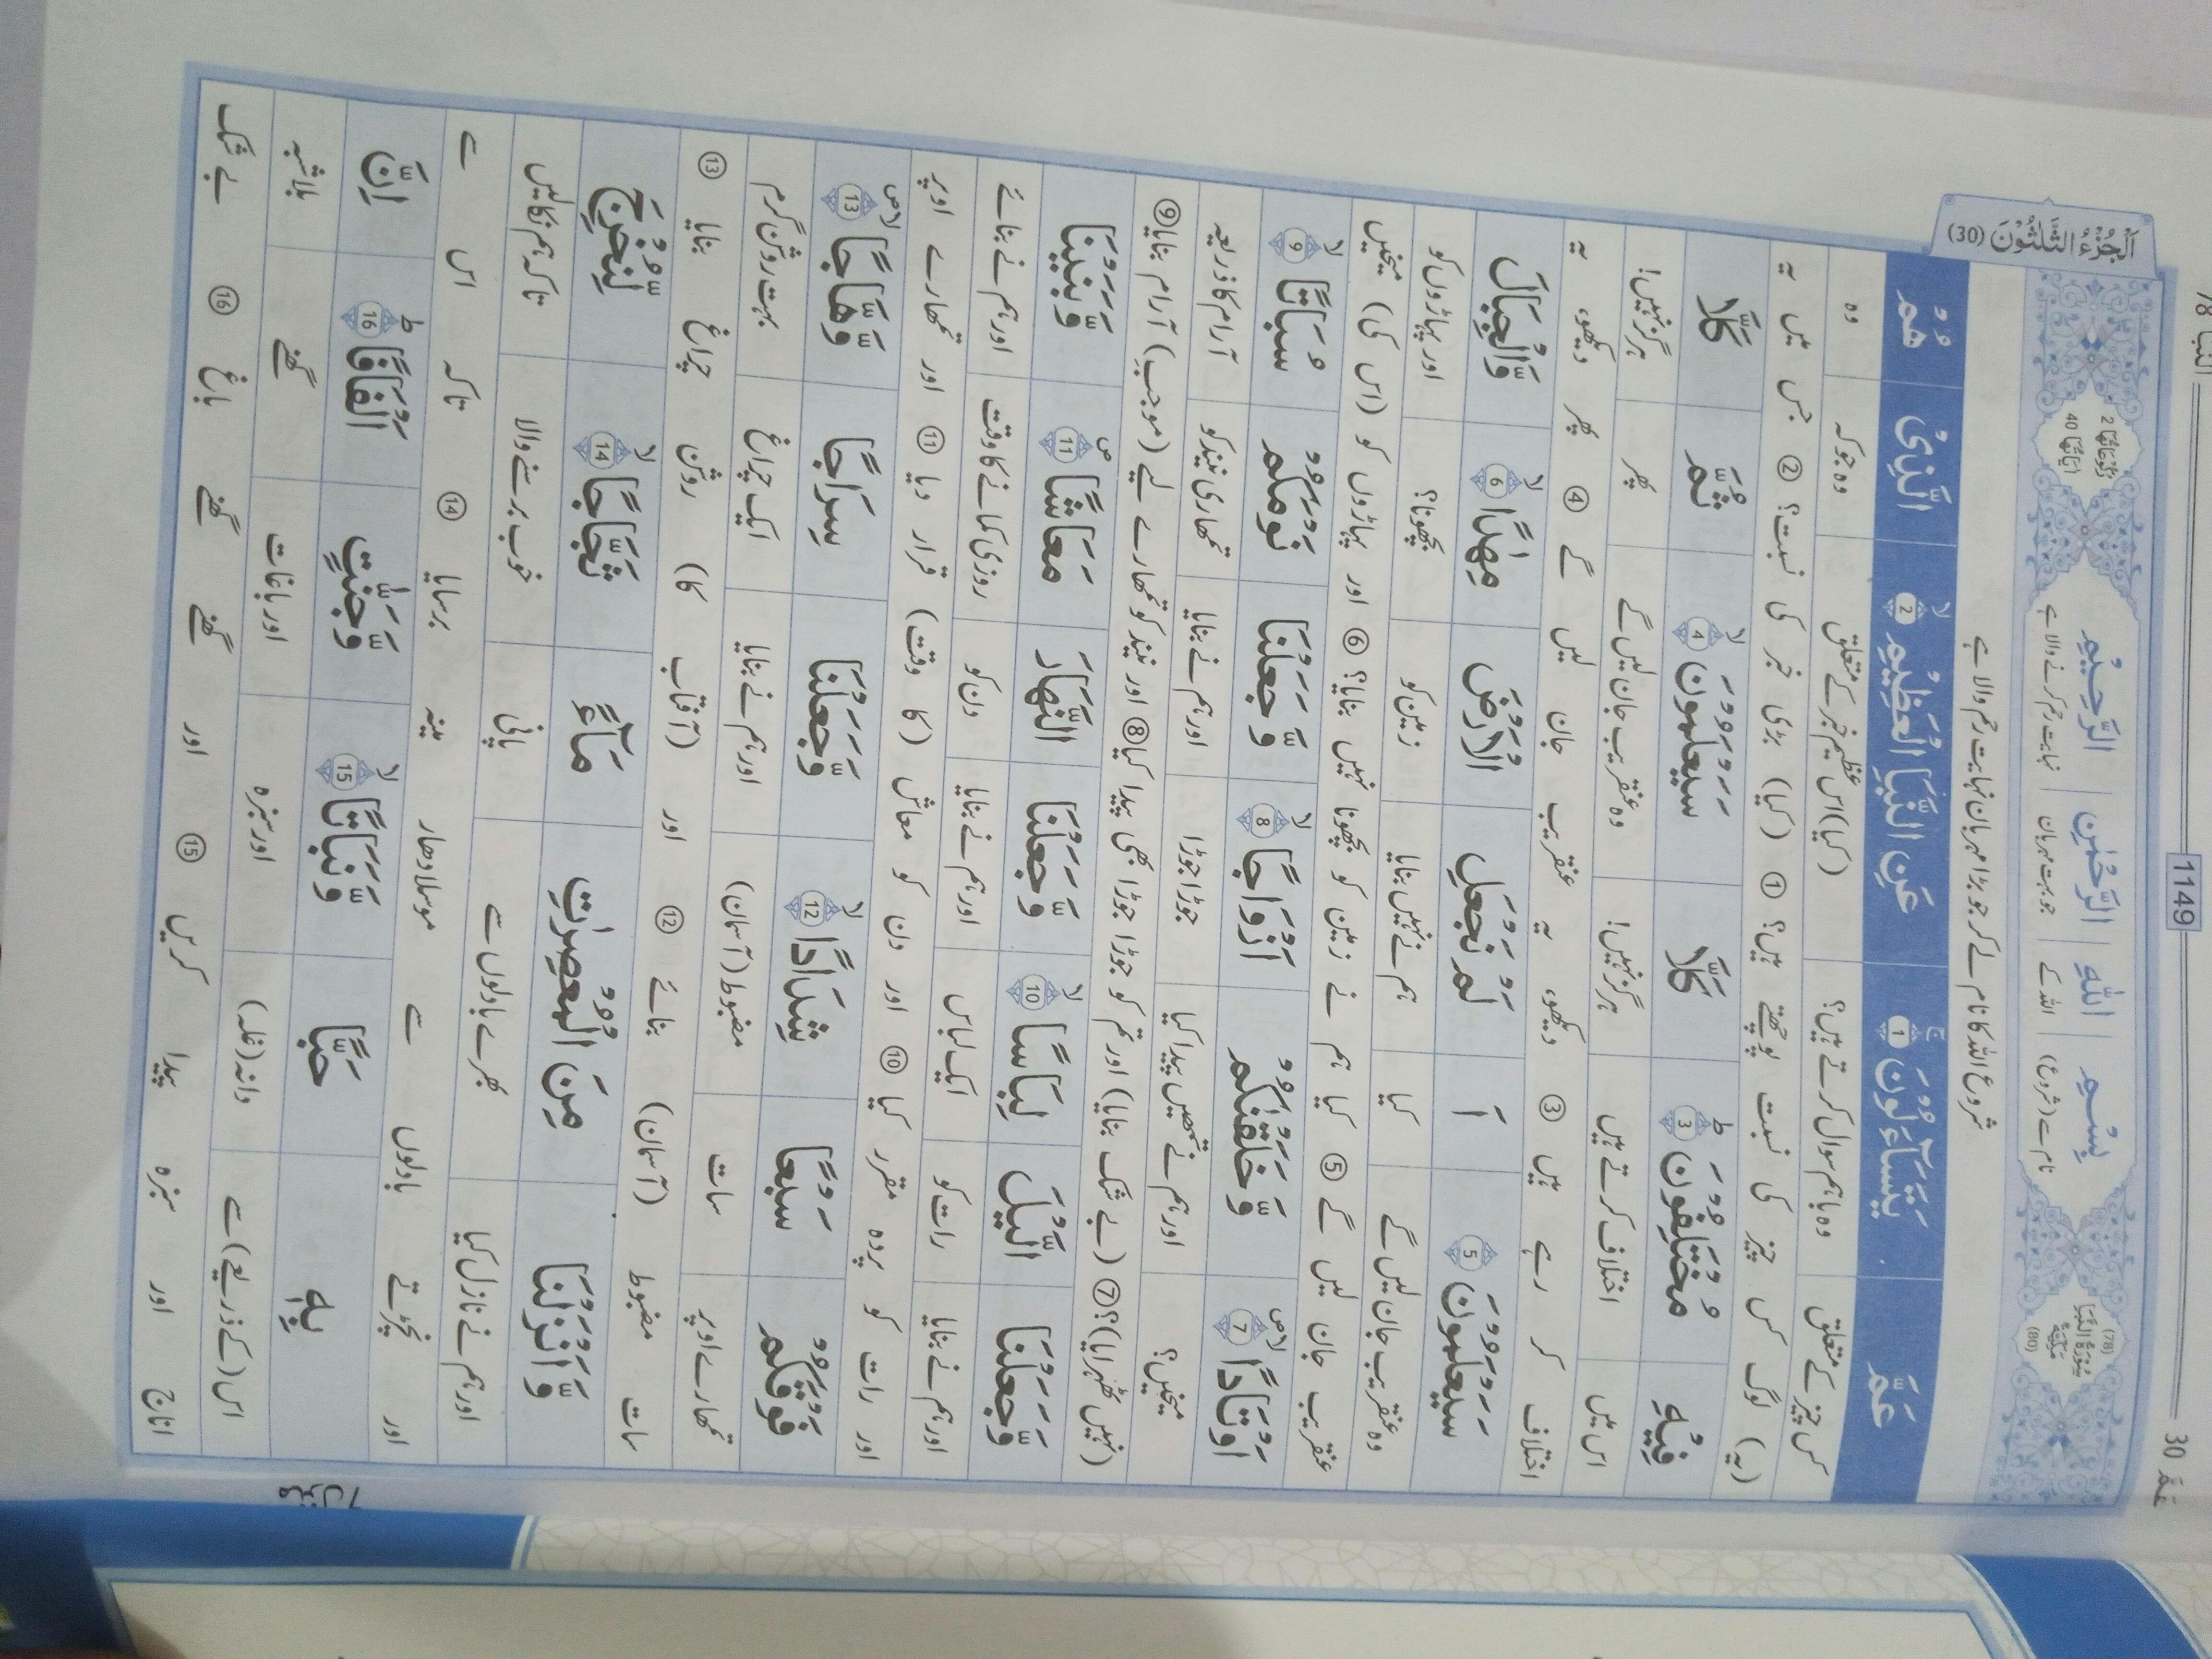 النبا 78
1149
عَمَّ 30
اَلْجُزْءُ الثَّلٰثُوْنَ (30)
(78) سُوْرَةُ النَّبَاِ مَكِّيَّةٌ (80)
بِسْمِ اللّٰهِ الرَّحْمٰنِ الرَّحِيْمِ
نام سے (شروع) اللہ کے جو بہت مہربان نہایت رحم کرنے والا ہے
رُكُوْعَاتُهَا 2 اٰيَاتُهَا 40
شروع اللہ کا نام لے کر جو بڑا مہربان نہایت رحم والا ہے
عَمَّ يَتَسَآءَلُوْنَ ① عَنِ النَّبَاِ الْعَظِيْمِ ② الَّذِيْ هُمْ
کس چیز کے متعلق وہ باہم سوال کرتے ہیں؟ (کیا) اس عظیم خبر کے متعلق وہ جو کہ وہ
(یہ) لوگ کس چیز کی نسبت پوچھتے ہیں؟ ① (کیا) بڑی خبر کی نسبت؟ ② جس میں یہ
فِيْهِ مُخْتَلِفُوْنَ ③ كَلَّا سَيَعْلَمُوْنَ ④ ثُمَّ كَلَّا
اس میں اختلاف کرتے ہیں ہرگز نہیں! وہ عنقریب جان لیں گے پھر ہرگز نہیں!
اختلاف کر رہے ہیں ③ دیکھو، یہ عنقریب جان لیں گے ④ پھر دیکھو، یہ
سَيَعْلَمُوْنَ ⑤ اَ لَمْ نَجْعَلِ الْاَرْضَ مِهٰدًا ⑥ وَّالْجِبَالَ
وہ عنقریب جان لیں گے کیا ہم نے نہیں بنایا زمین کو بچھونا؟ اور پہاڑوں کو
عنقریب جان لیں گے ⑤ کیا ہم نے زمین کو بچھونا نہیں بنایا؟ ⑥ اور پہاڑوں کو (اس کی) میخیں
اَوْتَادًا ⑦ وَّخَلَقْنٰكُمْ اَزْوَاجًا ⑧ وَّجَعَلْنَا نَوْمَكُمْ سُبَاتًا ⑨
میخیں؟ اور ہم نے تمھیں پیدا کیا جوڑا جوڑا اور ہم نے بنایا تمھاری نیند کو آرام کا ذریعہ
(نہیں ٹھہرایا)؟ ⑦ (بے شک بنایا) اور تم کو جوڑا جوڑا بھی پیدا کیا ⑧ اور نیند کو تمھارے لیے (موجب) آرام بنایا ⑨
وَّجَعَلْنَا الَّيْلَ لِبَاسًا ⑩ وَّجَعَلْنَا النَّهَارَ مَعَاشًا ⑪ وَّبَنَيْنَا
اور ہم نے بنایا رات کو ایک لباس اور ہم نے بنایا دن کو روزی کمانے کا وقت اور ہم نے بنائے
اور رات کو پردہ مقرر کیا ⑩ اور دن کو معاش (کا وقت) قرار دیا ⑪ اور تمھارے اوپر
فَوْقَكُمْ سَبْعًا شِدَادًا ⑫ وَّجَعَلْنَا سِرَاجًا وَّهَّاجًا ⑬
تمھارے اوپر سات مضبوط (آسمان) اور ہم نے بنایا ایک چراغ بہت روشن گرم
سات مضبوط (آسمان) بنائے ⑫ اور (آفتاب کا) روشن چراغ بنایا ⑬
وَّاَنْزَلْنَا مِنَ الْمُعْصِرٰتِ مَآءً ثَجَّاجًا ⑭ لِّنُخْرِجَ
اور ہم نے نازل کیا بھرے بادلوں سے پانی خوب برسنے والا تاکہ ہم نکالیں
اور نچڑتے بادلوں سے موسلا دھار مینہ برسایا ⑭ تاکہ اس سے
بِهٖ حَبًّا وَّنَبَاتًا ⑮ وَّجَنّٰتٍ اَلْفَافًا ⑯ اِنَّ
اس (کے ذریعے) سے دانہ (غلہ) اور سبزہ اور باغات گھنے بلاشبہ
اناج اور سبزہ پیدا کریں ⑮ اور گھنے گھنے باغ ⑯ بے شک
منزل 7